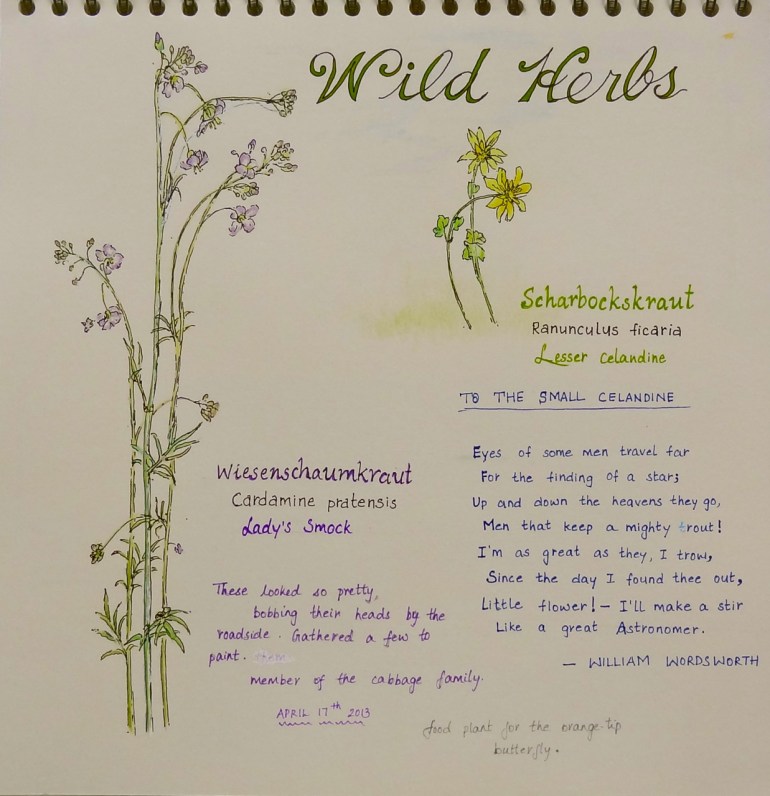 Wild Herbs
Scharbockskraut
Ranunculus ficaria
Lesser celandine
TO THE SMALL CELANDINE
Eyes of some men travel far
For the finding of a star;
Up and down the heavens they go,
Men that keep a mighty trout!
I'm as great as they, I trow,
Since the day I found thee out,
Little flower! – I'll make a stir
Like a great Astronomer.
— WILLIAM WORDSWORTH
Wiesenschaumkraut
Cardamine pratensis
Lady's Smock
These looked so pretty,
bobbing their heads by the
roadside. Gathered a few to
paint.
member of the cabbage family.
APRIL 17th 2013
food plant for the orange-tip
butterfly.